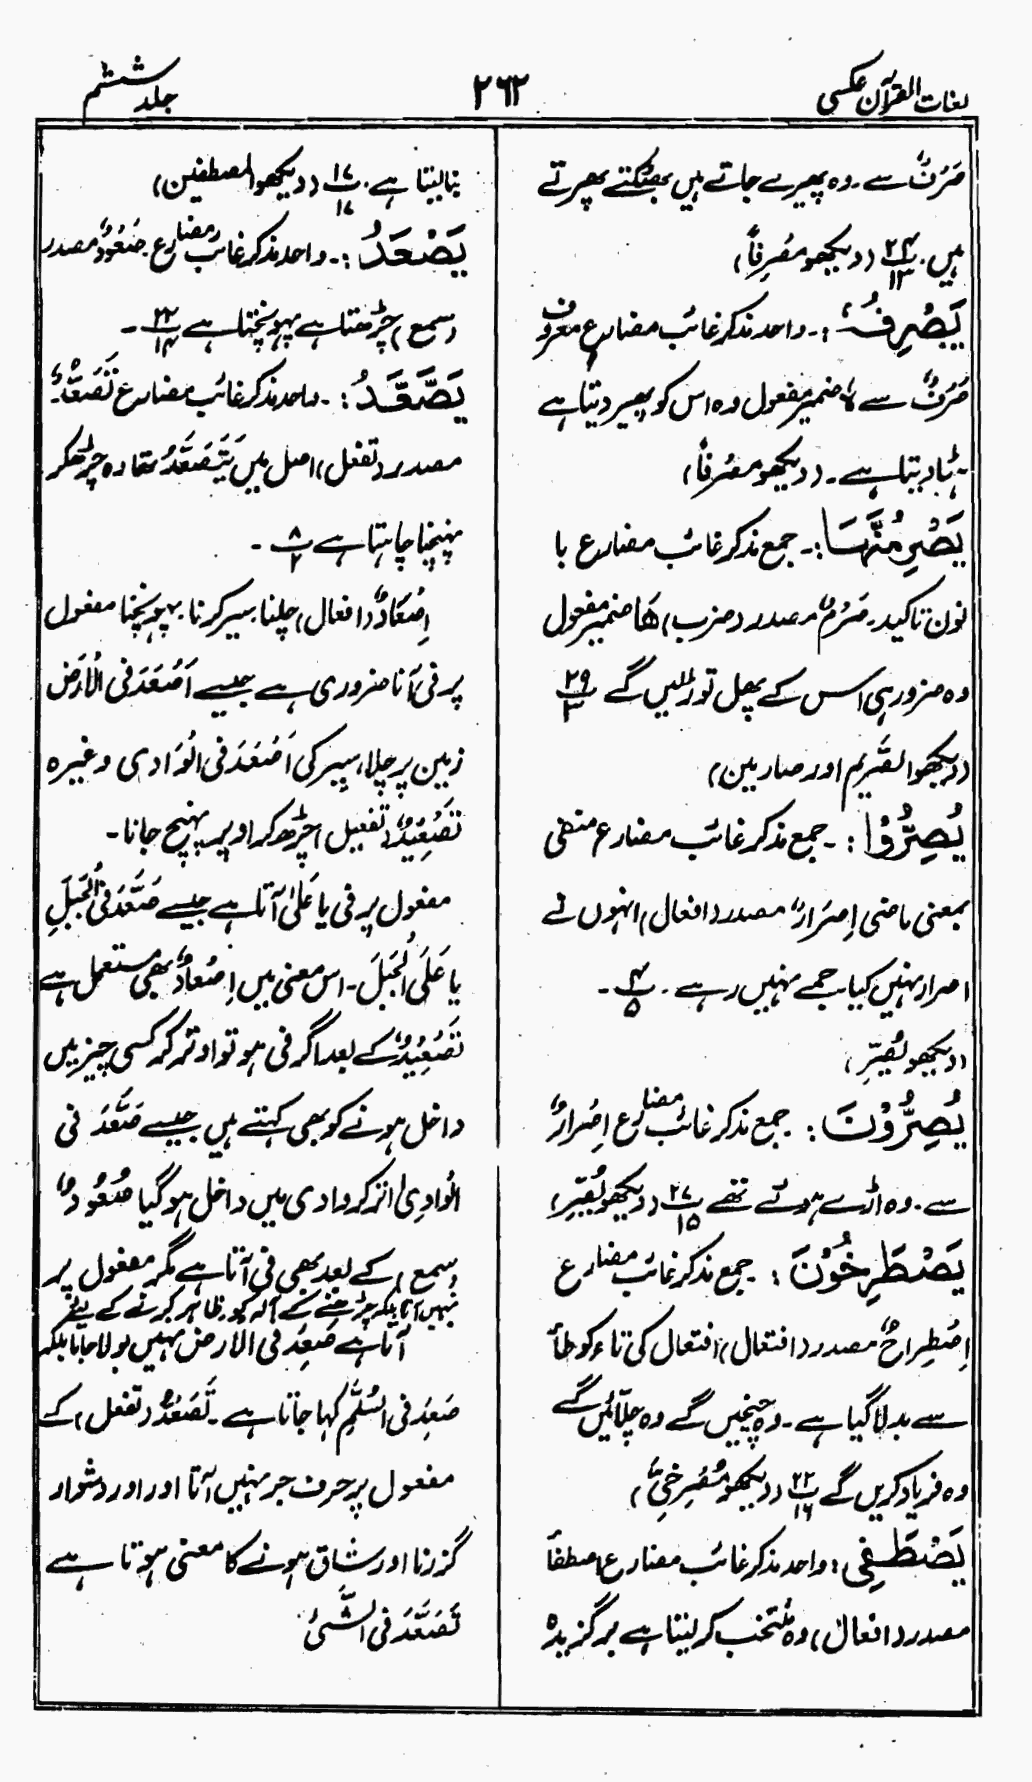 لغات القرآن عکسی
۲۶۲
جلد ششم
صَرْفٌ سے ۔ وہ پھیرے جاتے ہیں بھٹکتے پھرتے
ہیں ۔ ۲۴/۱۳ (دیکھو مَصْرِفاً)
یَصْرِفُہٗ :۔ واحد مذکر غائب مضارع معروف
صَرْفٌ سے ہٗ ضمیر مفعول وہ اس کو پھیر دیتا ہے
ہٹا دیتا ہے ۔ (دیکھو مصْرِفاً)
یَصْرِمُنَّہَا :۔ جمع مذکر غائب مضارع با
نون تاکید ۔ صَرْمٌ مصدر (ضرب) ھَا ضمیر مفعول
وہ ضرور ہی اس کے پھل توڑ لیں گے ۲۹/۳
(دیکھو الصَّرِیم اور صارمین)
یُصِرُّوْا :۔ جمع مذکر غائب مضارع منفی
بمعنی ماضی اِصْرَارٌ مصدر (افعال) انہوں نے
اصرار نہیں کیا ۔ جمے نہیں رہے ۔ ۴/۵ ۔
(دیکھو یُصِرّ)
یُصِرُّوْنَ : جمع مذکر غائب مضارع اِصْرَارٌ
سے ۔ وہ اڑے ہوئے تھے ۲۷/۱۵ (دیکھو یُصِرّ)
یَصْطَرِخُوْنَ : جمع مذکر غائب مضارع
اِصْطِراخٌ مصدر (افتعال) افتعال کی تاء کو طاً
سے بدلا گیا ہے ۔ وہ چیخیں گے وہ چلّائیں گے
وہ فریاد کریں گے ۲۲/۱۶ (دیکھو مُصْرِخِیَّ)
یَصْطَفِی : واحد مذکر غائب مضارع اصطفاً
مصدر (افعال) وہ منتخب کر لیتا ہے برگزیدہ
بنا لیتا ہے ۔ ۱۷/۱۷ (دیکھو المصطفین)
یَصْعَدُ :۔ واحد مذکر غائب مضارع ۔ صُعُوْدٌ مصدر
(سمع) چڑھتا ہے پہونچتا ہے ۲۲/۱۴ ۔
یَصَّعَّدُ :۔ واحد مذکر غائب مضارع تَصَعُّدٌ
مصدر (تفعل) اصل میں یَتَصَعَّدُ تھا وہ چڑھ کر
پہنچنا چاہتا ہے ۸/۲ ۔
اِصْعَادٌ (افعال) چلنا سیر کرنا ۔ پہونچنا مفعول
پر فی آنا ضروری ہے جیسے اَصْعَدَ فی الْاَرْضِ
زمین پر چلا، سیر کی اَصْعَدَ فی الْوَادِی وغیرہ
تَصْعِیْدٌ (تفعیل) چڑھ کر اوپر پہنچ جانا ۔
مفعول پر فی یا عَلیٰ آتا ہے جیسے صَعَّدَ فی الْجَبَلِ
یا عَلَی الْجَبَلَ ۔ اس معنی میں اِصْعادٌ بھی مستعمل ہے
تَصْعِیْدٌ کے بعد اگر فی ہو تو اوتر کر کسی چیز میں
داخل ہونے کو بھی کہتے ہیں جیسے صَعَّدَ فی
الْوادِی اتر کر وادی میں داخل ہو گیا صُعُوْدٌ
(سمع) کے بعد بھی فی آتا ہے مگر مفعول پر
نہیں آتا بلکہ چڑھنے کے آلہ کو ظاہر کرنے کے لیے
آتا ہے صَعِدَ فی الارض نہیں بولا جاتا بلکہ
صَعِدَ فی السُّلَّمِ کہا جاتا ہے ۔ تَصَعُّدٌ (تفعل) کے
مفعول پر حرف جر نہیں آتا اور اور دشوار
گزرنا اور شاق ہونے کا معنی ہوتا ہے
تَصَعَّدَ فی الشَّیْءُ